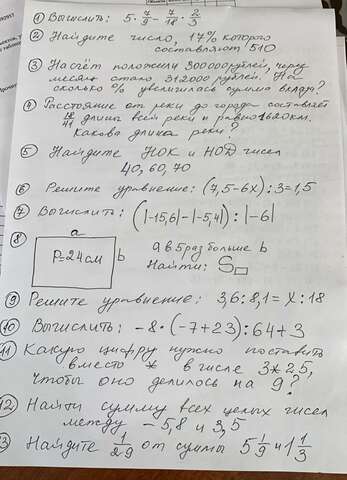 ① Вычислить: 5 · 7/9 − 7/18 · 2/3
② Найдите число, 17% которого
составляют 510
③ На счёт положили 300000 рублей, через
месяц стало 312000 рублей. На
сколько % увеличилась сумма вклада?
④ Расстояние от реки до города составляет
/41 длины всей реки и равно 1620 км.
Какова длина реки?
⑤ Найдите НОК и НОД чисел
40, 60, 70
⑥ Решите уравнение: (7,5-6х) : 3 = 1,5
⑦ Вычислить: (|-15,6|-|-5,4|) : |-6|
⑧ a
P=24см b
a в 5 раз больше b
Найти: S▭
⑨ Решите уравнение: 3,6 : 8,1 = х : 18
10 Вычислить: -8 · (-7+23) : 64 + 3
11 Какую цифру нужно поставить
вместо * в числе 3*25,
чтобы оно делилось на 9?
12 Найти сумму всех целых чисел
между -5,8 и 3,5
13 Найдите 1/29 от суммы 5 1/9 и 1 1/3